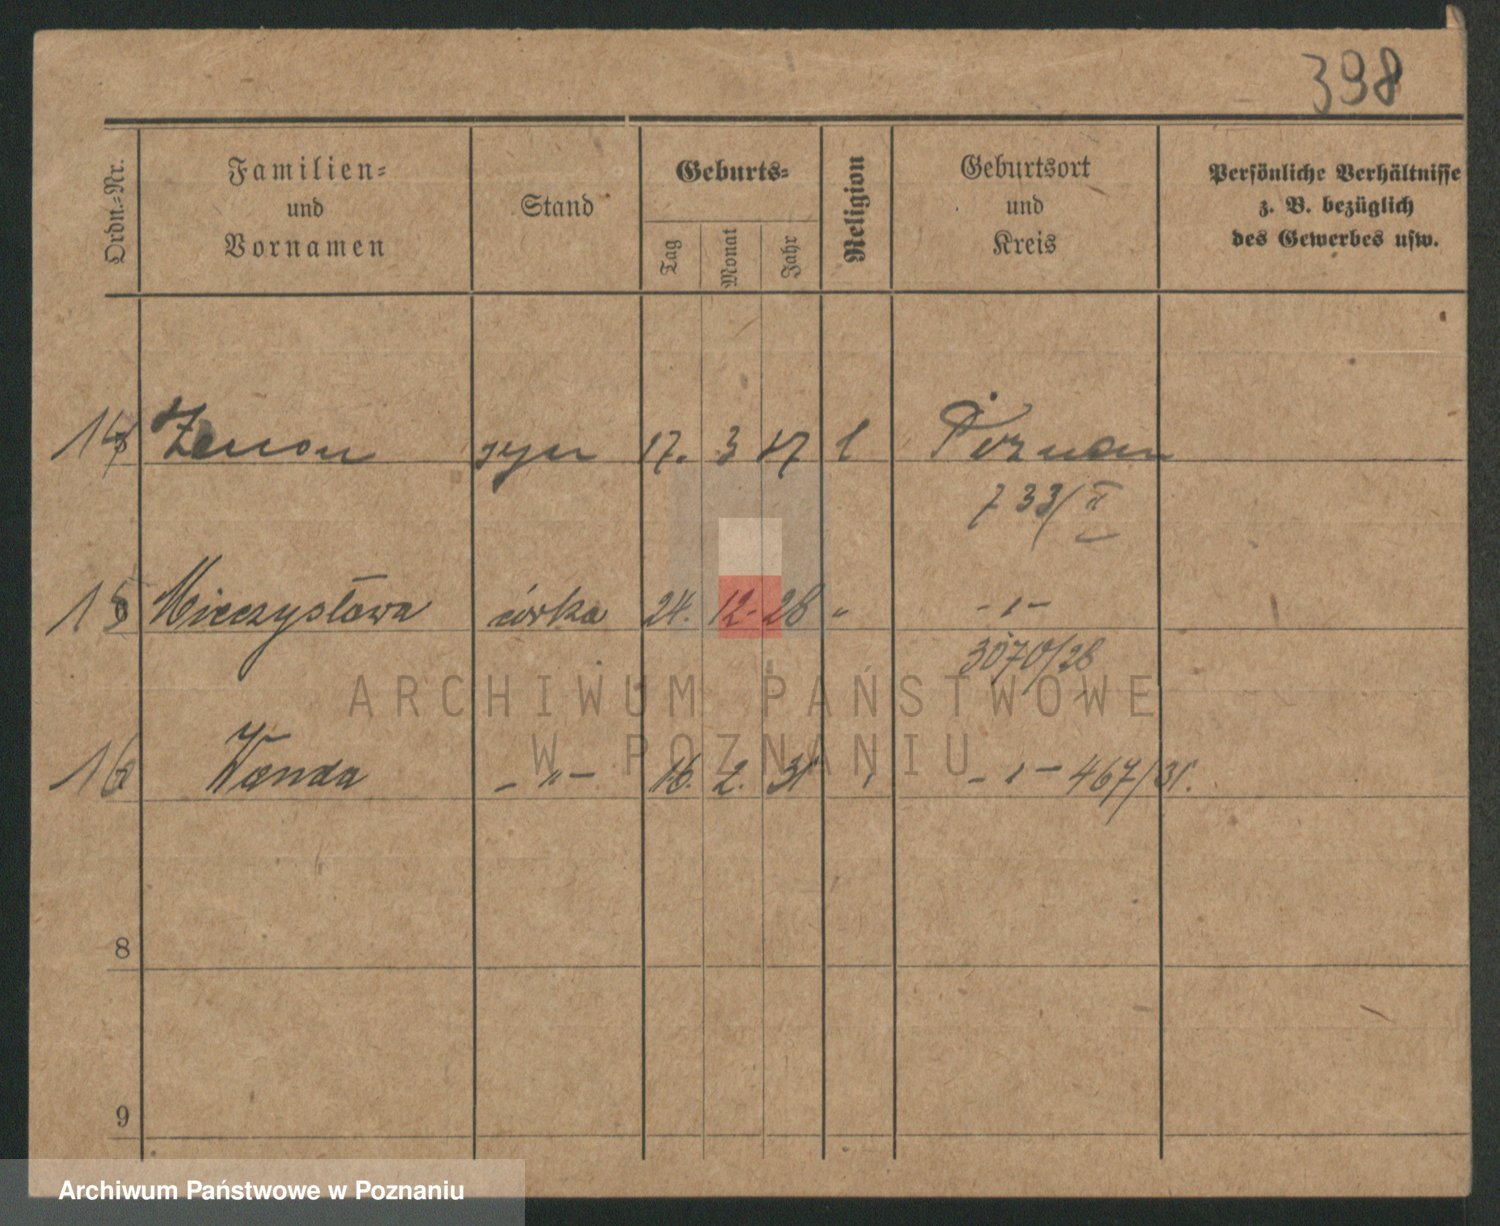 398
Ordn.-Nr.
Familien-
und
Vornamen
Stand
Geburts-
Tag
Monat
Jahr
Religion
Geburtsort
und
Kreis
Persönliche Verhältnisse
z. B. bezüglich
des Gewerbes usw.
14 Zenon syn 17. 3 17 Poznan
733/II
15 Mieczysława córka 24. 12.- 28 " -"-
3070/28
16 Wanda -"- 16. 2. 31 " -"- 467/31.
ARCHIWUM PAŃSTWOWE
W POZNANIU
8
9
Archiwum Państwowe w Poznaniu